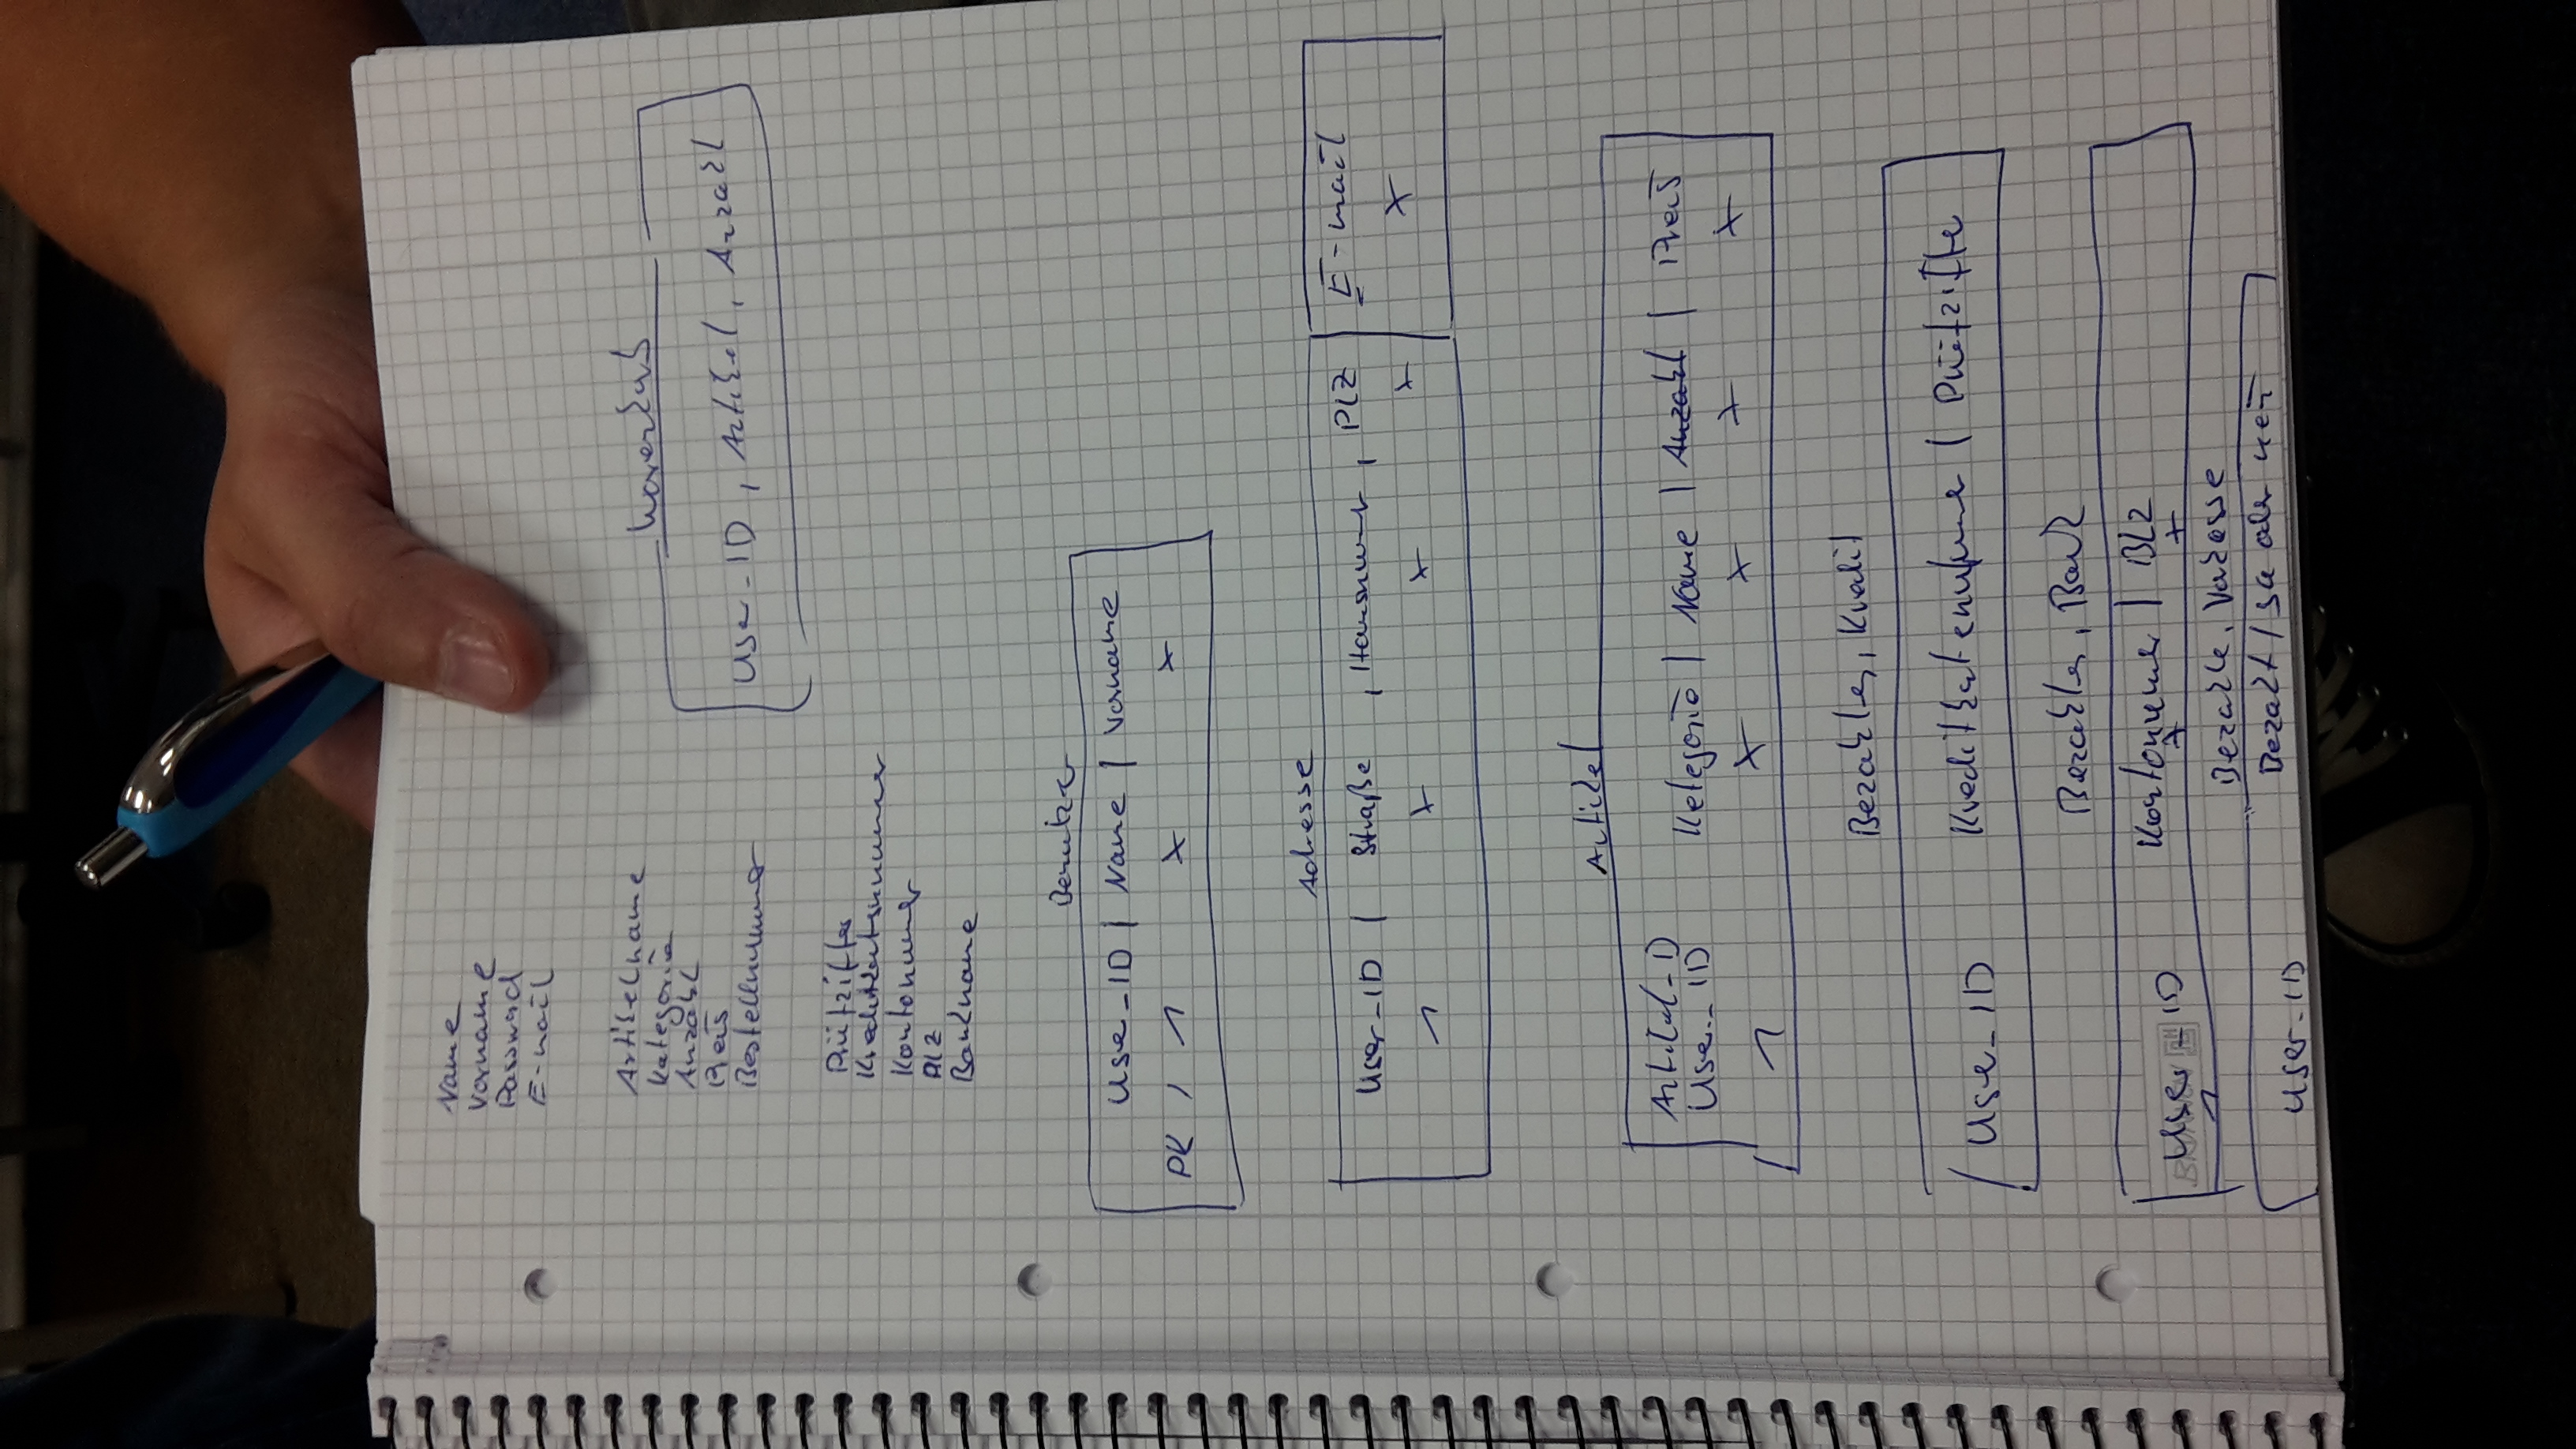 Name
Vorname
Passwort
E-mail
Artikelname
Kategorie
Anzahl
Preis
Bestellnummer
Warenkorb
User-ID, Artikel, Anzahl
Prüfziffer
Kreditkartennummer
Kontonummer
BLZ
Bankname
Benutzer
User-ID | Name | Vorname
PK, 1 x x
Adresse
User-ID | Straße, Hausnummer, PLZ E-mail
1 x x x x
Artikel
Artikel-ID
User-ID Kategorie | Name | Anzahl | Preis
1 x x x x
Bezahlen, Kredit
User-ID Kreditkartennummer | Prüfziffer
Bezahlen, Bank
User-ID Kontonummer | BLZ
1 x x
Bezahle, Vorkasse
User-ID Bezahlt | Ja oder nein